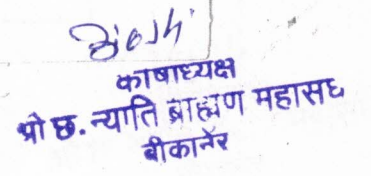 काषाध्यक्ष
श्री छ. न्याति ब्राह्मण महासघ
बीकानेर